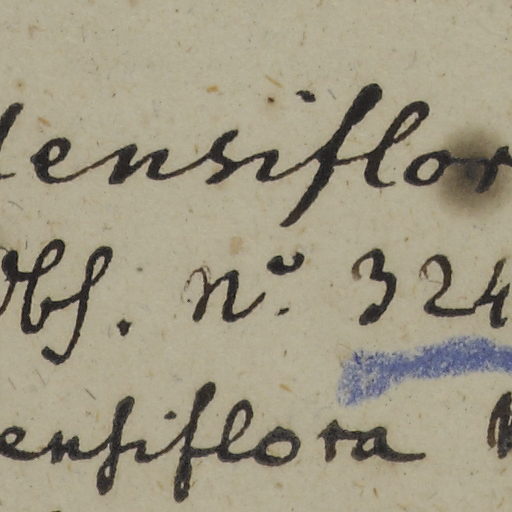 densiflor
Obs. No. 324
ensiflora